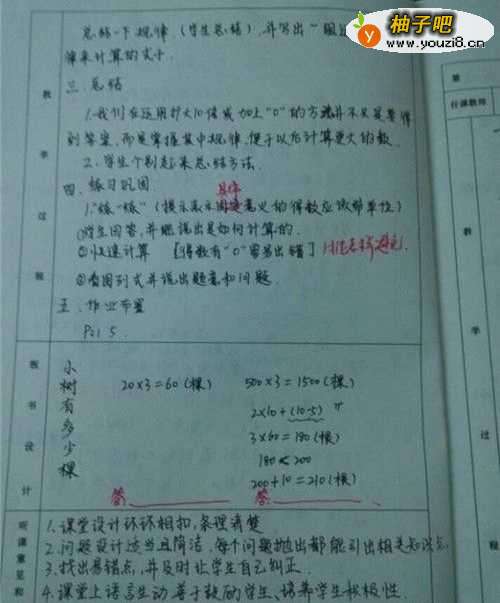 柚子吧
www.youzi8.cn
总结一下规律（学生总结），并写出“
律来计算的式子.
三. 总结
1.我们在运用扩大10倍或加上“0”的方法并不只是要得
到答案，而是掌握其中规律，便于以后计算更大的数.
2. 学生个别起来总结方法.
四. 练习巩固
具体
1.“练一练”（提示表示意义的得数应该带单位）
①学生回答，并能说出是如何计算的.
②快速计算 [得数有“0”容易出错]
③看图列式并说出题意和问题.
五. 作业布置
P21 5.
教学过程
小树有多少棵
20×3=60（棵） 500×3=1500（棵）
2×10+(10-5)
3×60=180（棵）
180<200
200+10=210（棵）
答: 答:
板书设计
听课意见和
1.课堂设计环环相扣，条理清楚.
2.问题设计适当且简洁，每个问题抛出都能引出相关知识点.
3.找出易错点，并及时让学生自己纠正.
4.课堂上语言生动善于鼓励学生、培养学生积极性.
第
任课教师
教学过程